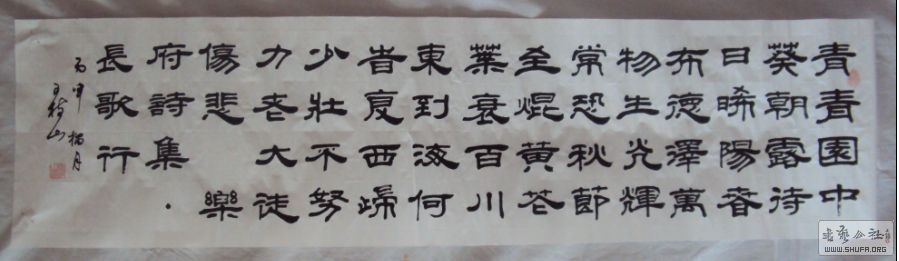 青青園中
葵朝露待
日晞陽春
布德澤萬
物生光輝
常恐秋節
至焜黄花
葉衰百川
東到海何
旹复西歸
少壯不努
力老大徒
傷悲 樂
府詩集·
長歌行
丙申 月
山
書藝公社
WWW.SHUFA.ORG